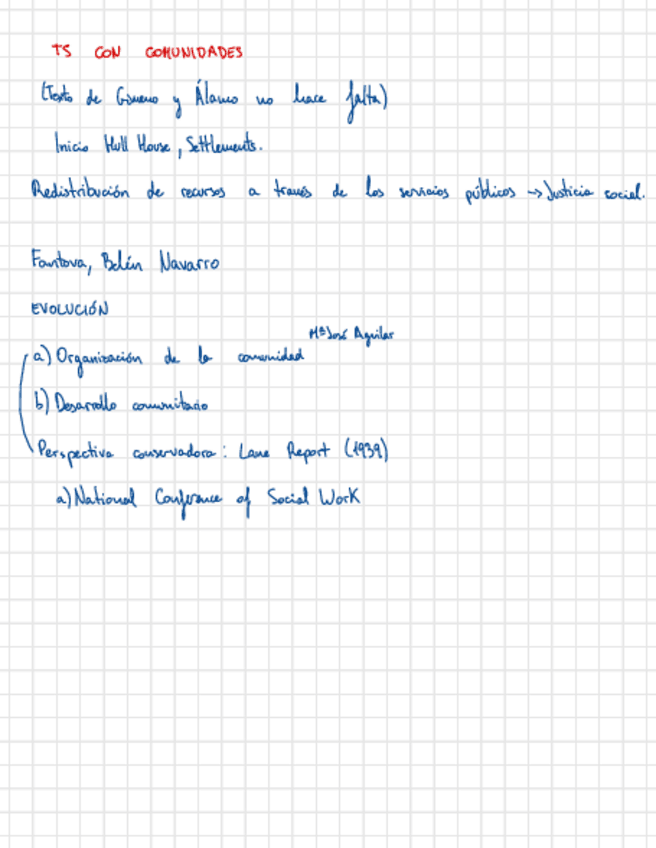 TS CON COMUNIDADES
(Texto de Gimeno y Álamo no hace falta)
Inicio Hull House, Settlements.
Redistribución de recursos a través de los servicios públicos → Justicia social.
Fantova, Belén Navarro
EVOLUCIÓN
Mª José Aguilar
a) Organización de la comunidad
b) Desarrollo comunitario
Perspectiva conservadora: Lane Report (1939)
a) National Conference of Social Work